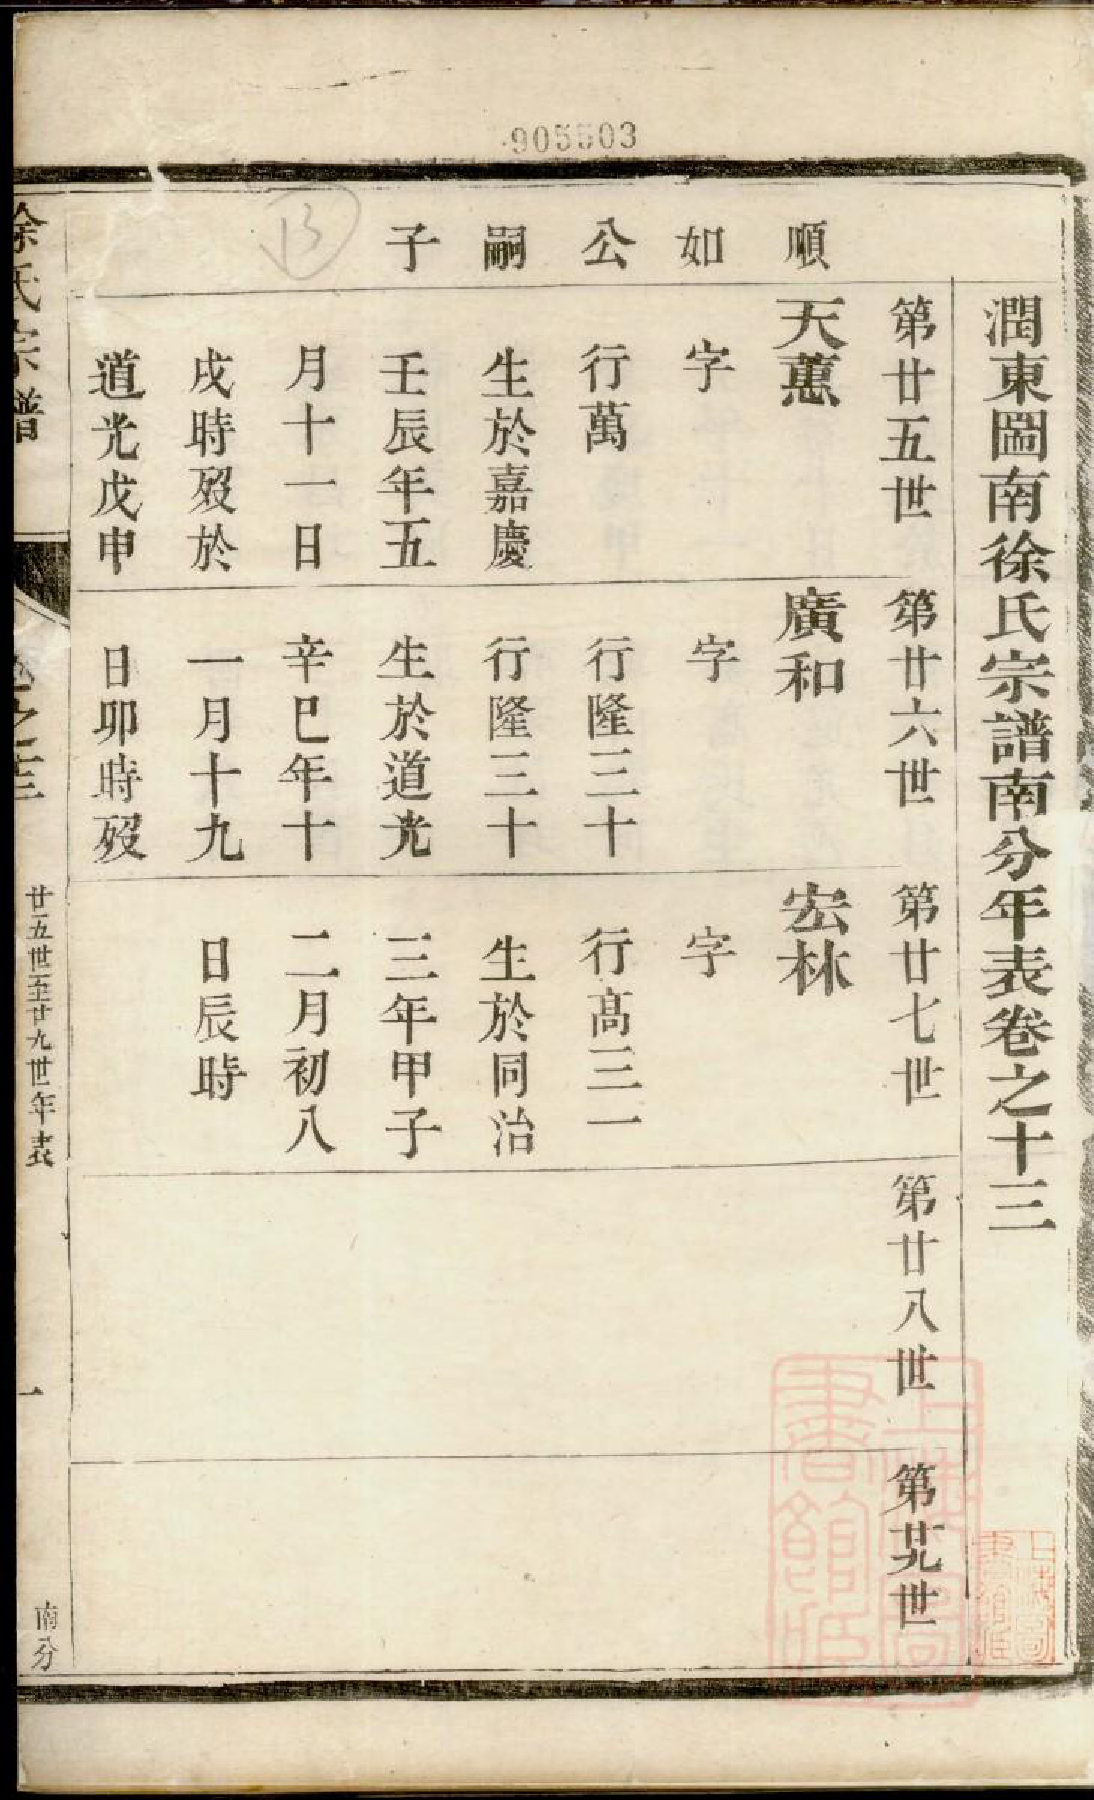 905503
潤東圌南徐氏宗譜南分年表卷之十三
順
如
公
嗣
子
第廿五世
天蕙
字
行萬
生於嘉慶
壬辰年五
月十一日
戌時歿於
道光戊申
第廿六世
廣和
字
行隆三十
行隆三十
生於道光
辛巳年十
一月十九
日卯時歿
第廿七世
宏林
字
行髙三一
生於同治
三年甲子
二月初八
日辰時
第廿八世
第廿九世
徐氏宗譜
卷之十三
廿五世至廿九世年表
一
南分
13
上海圖書館藏
上海圖書館藏